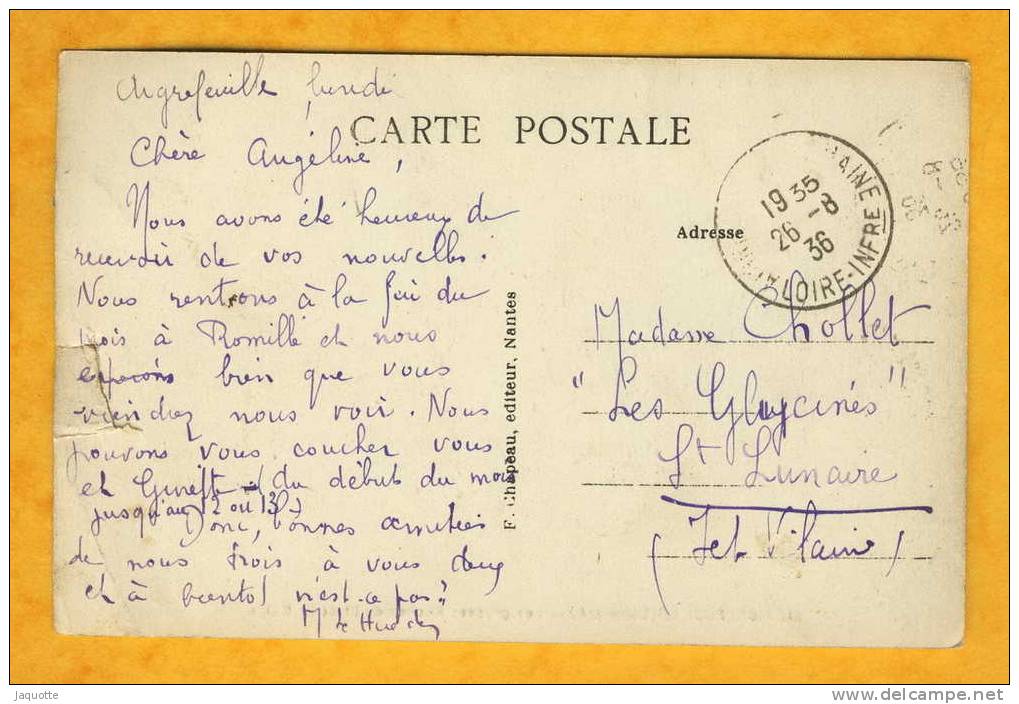 Aigrefeuille, lundi
CARTE POSTALE
Chère Angéline,
Nous avons été heureux de
recevoir de vos nouvelles.
Nous rentrons à la fin du
mois à Romillé et nous
espérons bien que vous
viendrez nous voir. Nous
pouvons vous coucher vous
et (du début du mois
jusqu'au 12 ou 13)
Donc, bonnes amitiés
de nous trois à vous deux
et à bientôt n'est-ce pas?
M
F. Chapeau, editeur, Nantes
Adresse
MAINE
LOIRE-INFRE
19 35
26 -8
36
Madame Chollet
"Les Glycines"
St Lunaire
(I et Vilaine)
Jaquotte
delcampe.net